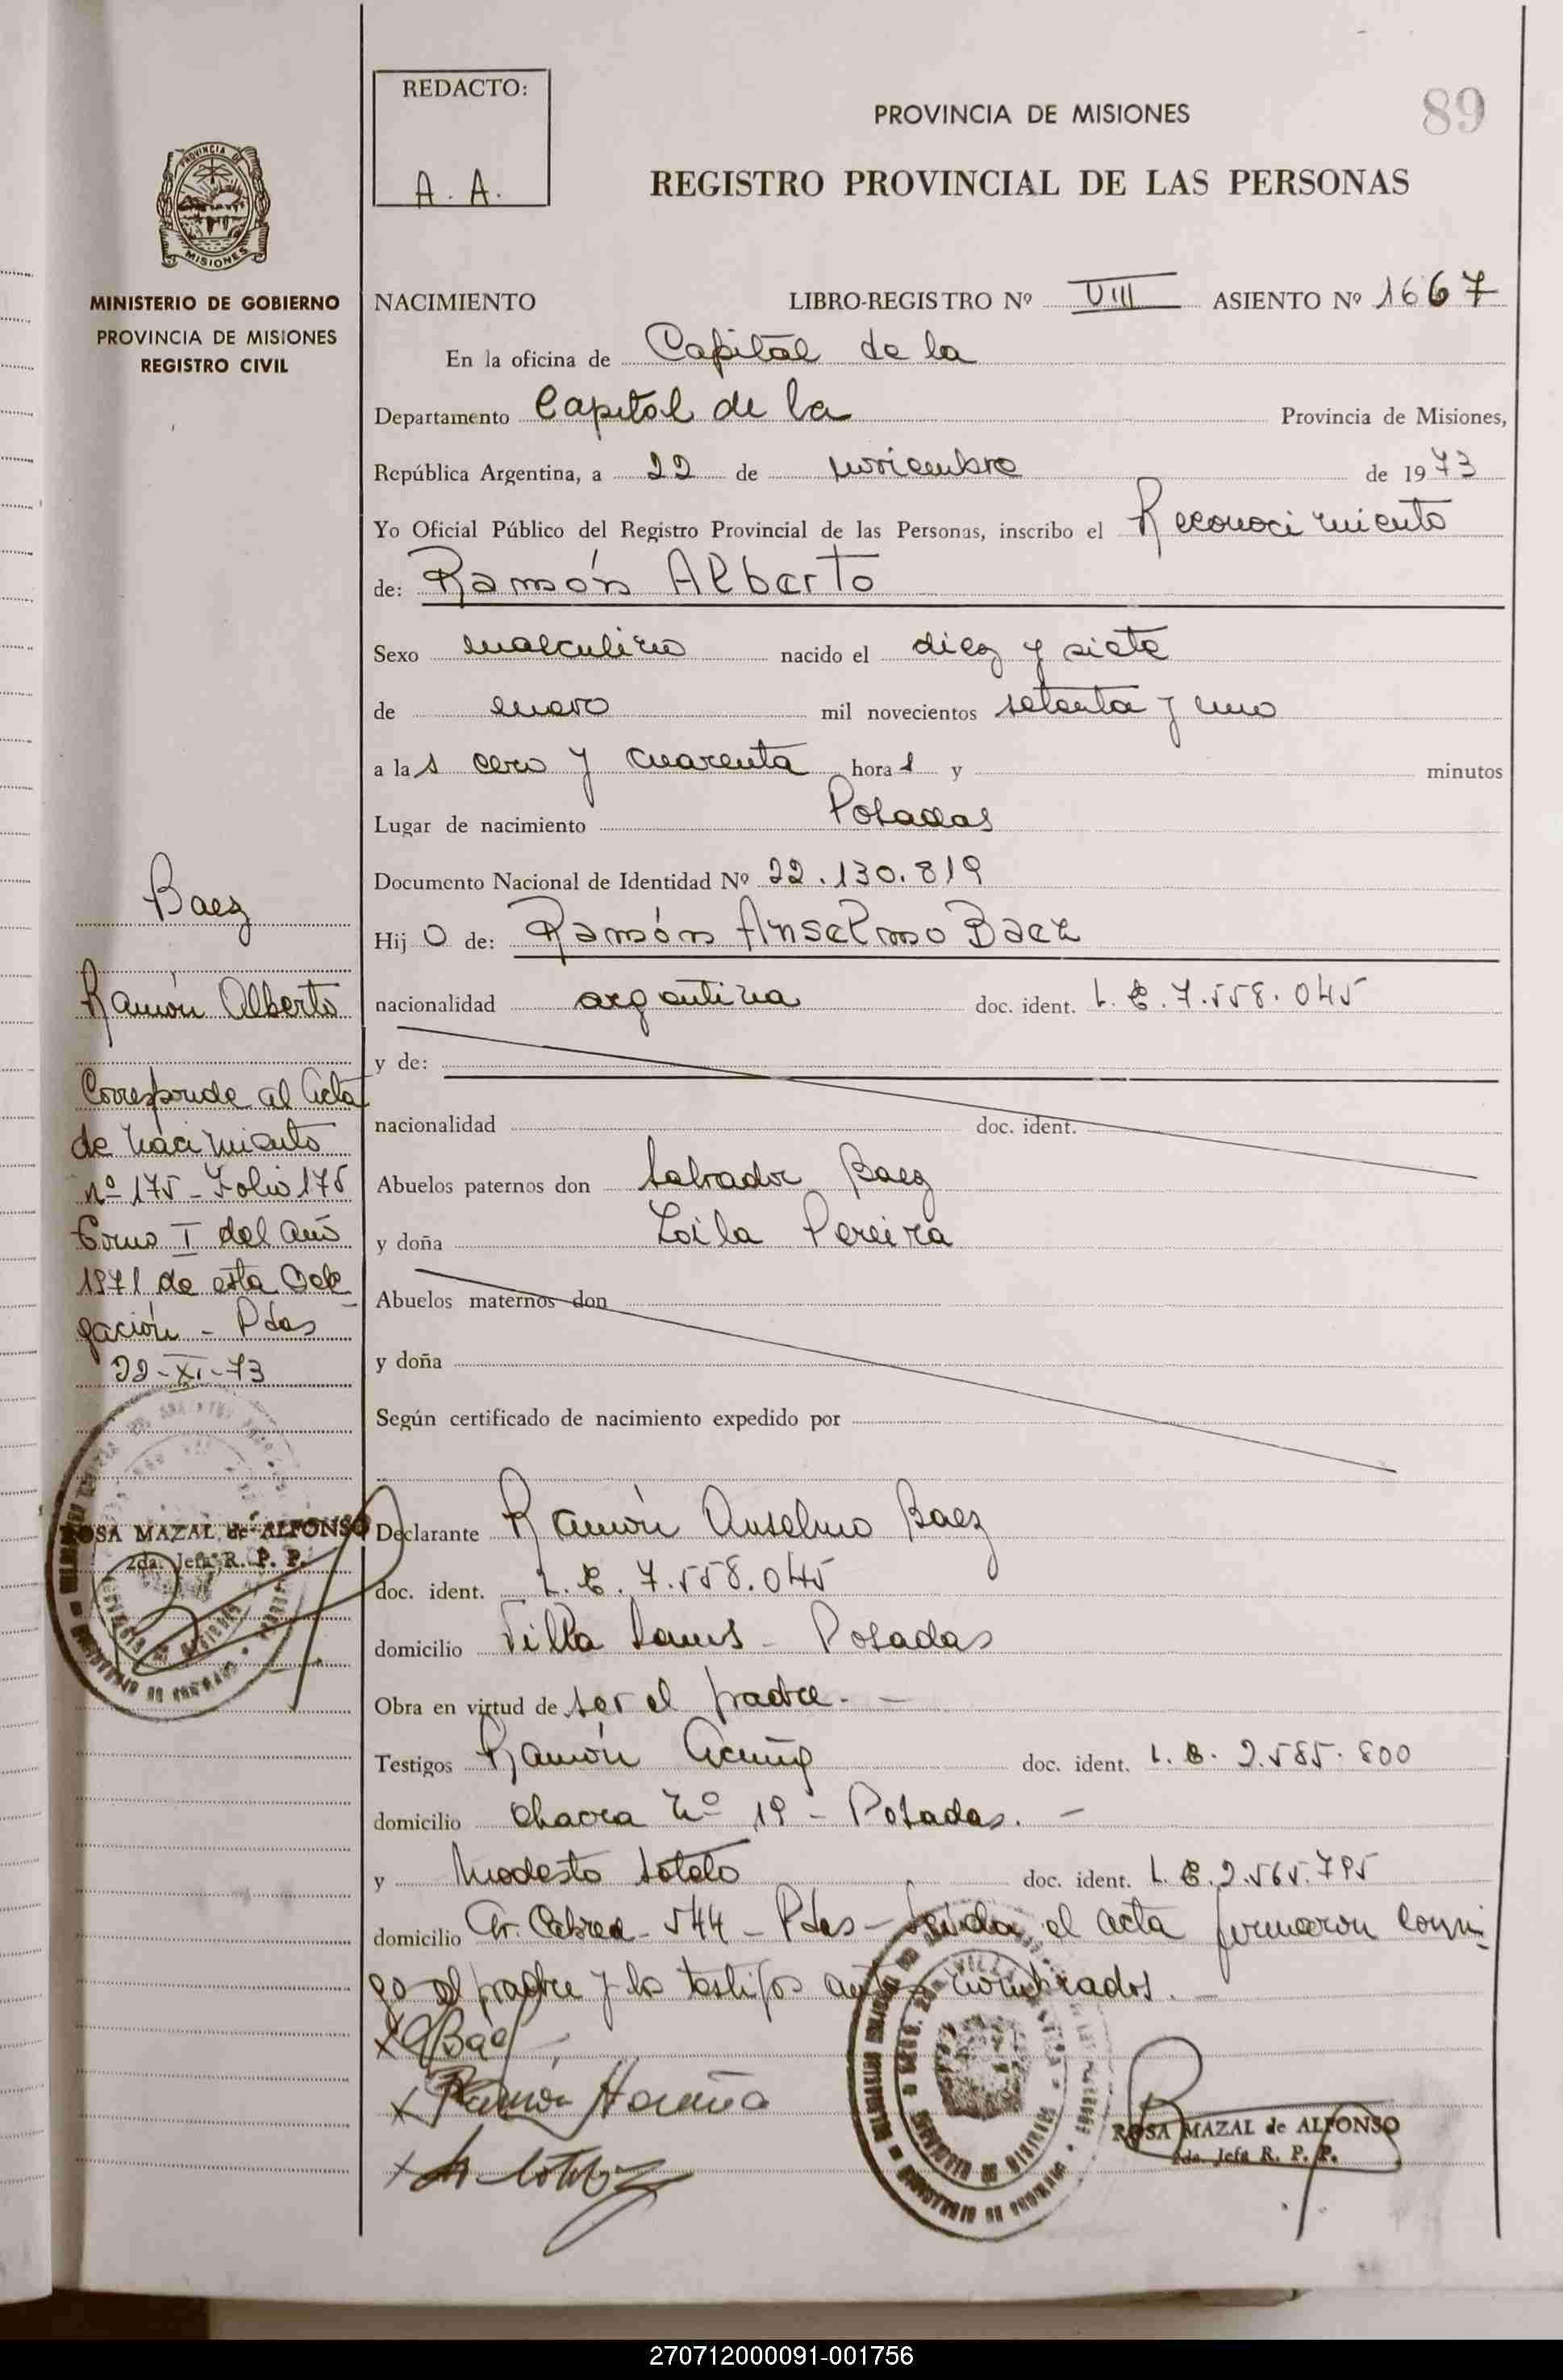 REDACTO:
A. A.
PROVINCIA DE MISIONES
89
REGISTRO PROVINCIAL DE LAS PERSONAS
PROVINCIA DE
MISIONES
MINISTERIO DE GOBIERNO
PROVINCIA DE MISIONES
REGISTRO CIVIL
NACIMIENTO LIBRO-REGISTRO Nº VIII ASIENTO Nº 1667
En la oficina de Capital de la
Departamento Capital de la Provincia de Misiones,
República Argentina, a 22 de noviembre de 1973
Yo Oficial Público del Registro Provincial de las Personas, inscribo el Reconocimiento
de: Ramón Alberto
Sexo masculino nacido el diez y siete
de enero mil novecientos setenta y uno
a las cero y cuarenta horas y minutos
Lugar de nacimiento Posadas
Documento Nacional de Identidad Nº 22.130.819
Hijo de: Ramón Anselmo Baez
nacionalidad argentina doc. ident. L. E. 7.558.045
y de:
nacionalidad doc. ident.
Abuelos paternos don Salvador Baez
y doña Zoila Pereira
Abuelos maternos don
y doña
Según certificado de nacimiento expedido por
Declarante Ramón Anselmo Baez
doc. ident. L. E. 7.558.045
domicilio Villa Posadas
Obra en virtud de ser el padre. -
Testigos Ramón Acuña doc. ident. L. E. 2.585.800
domicilio chacra Nº 19 - Posadas. -
y Modesto Sotelo doc. ident. L. E. 2.565.795
domicilio Cabred - 544 - Pdas - Leída el acta firmaron conmi
go el padre y los testigos antes nombrados. -
x Báez
x Ramón Acuña
x
ROSA MAZAL de ALFONSO
2da. Jefa R. P. P.
Baez
Ramón Alberto
Corresponde al Acta
de Nacimiento
nº 175 - Folio 175
Tomo I del año
1971 de esta Dele
gación - Pdas
22-XI-73
ROSA MAZAL de ALFONSO
2da. Jefa R. P. P.
270712000091-001756